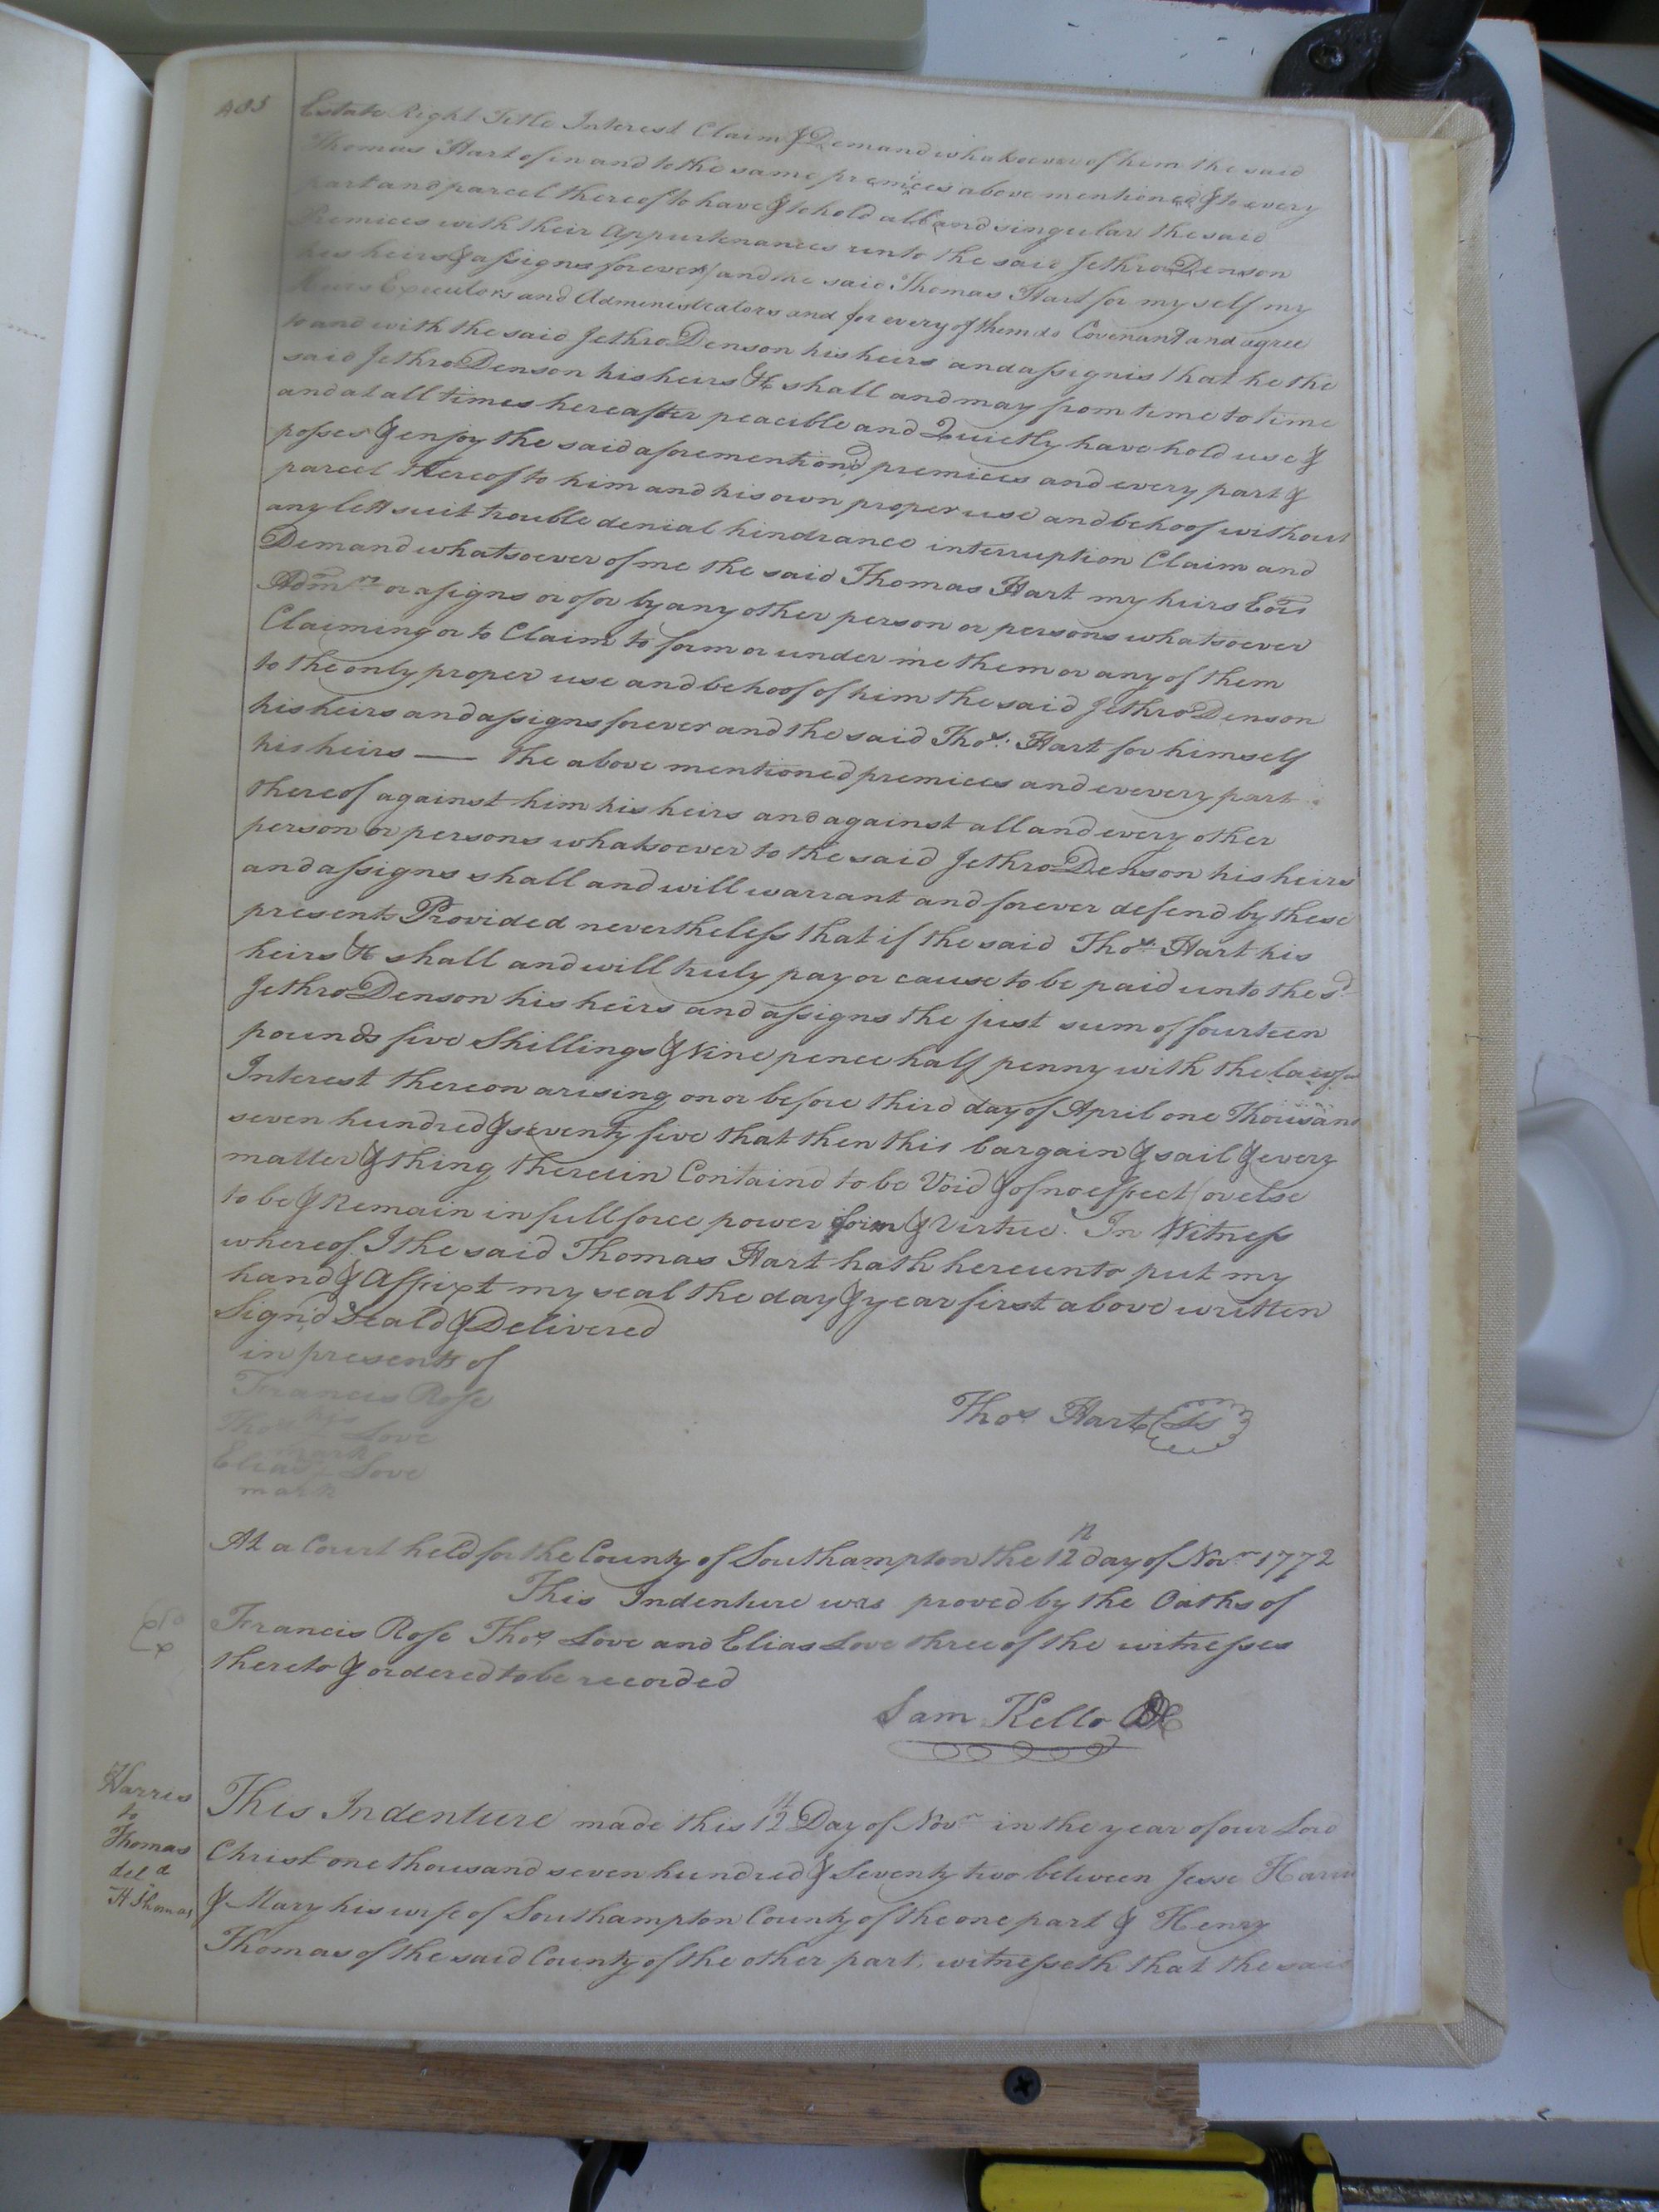 485
Estate Right Title Interest Claim & Demand whatsoever of him the said
Thomas Hart of in and to the same premices above mentioned & to every
part and parcel thereof to have & to hold all and singular the said
Premices with their Appurtenances unto the said Jethro Denson
his heirs & assigns forever / and the said Thomas Hart for my self my
Heirs Executors and Administrators and for every of them do Covenant and agree
to and with the said Jethro Denson his heirs and assignis that he the
said Jethro Denson his heirs &c shall and may from time to time
and at all times hereafter peacible and Quietly have hold use &
posses & enjoy the said aforemention'd premices and every part &
parcel thereof to him and his own proper use and behoof without
any lett suit trouble denial hindrance interruption Claim and
Demand whatsoever of me the said Thomas Hart my heirs Exors
Admrs or assigns or of or by any other person or persons whatsoever
Claiming or to Claim to form or under me them or any of them
to the only proper use and behoof of him the said Jethro Denson
his heirs and assigns forever and the said Thos. Hart for himself
his heirs — the above mentioned premices and evevery part
thereof against him his heirs and against all and every other
person or persons whatsoever to the said Jethro Denson his heirs
and assigns shall and will warrant and forever defend by these
presents Provided nevertheless that if the said Thos. Hart his
heirs &c shall and will truly pay or cause to be paid unto the sd.
Jethro Denson his heirs and assigns the just sum of fourteen
pounds five Shillings & Nine pence half penny with the lawfu
Interest thereon arising on or before third day of April one Thousand
seven hundred & seventy five that then this bargain & sail & every
matter & thing therein Containd to be Void & of no effect / or else
to be & Remain in full force power form & Virtue. In Witness
whereof I the said Thomas Hart hath hereunto put my
hand & Affixt my seal the day & year first above written
Sign'd Seald & Delivered
in presents of
Francis Rose
Thos his Love
mark
Elias Love
mark
Thos Hart (LS)
At a Court held for the County of Southampton the 12th day of Novr. 1772
This Indenture was proved by the Oaths of
Francis Rose Thos. Love and Elias Love three of the witnesses
thereto & ordered to be recorded
Sam Kello CC
Harris
to
Thomas
deld
H Thomas
This Indenture made this 12th Day of Novr in the year of our Lord
Christ one thousand seven hundred & Seventy two between Jesse Harris
& Mary his wife of Southampton County of the one part & Henry
Thomas of the said County of the other part, witnesseth that the said